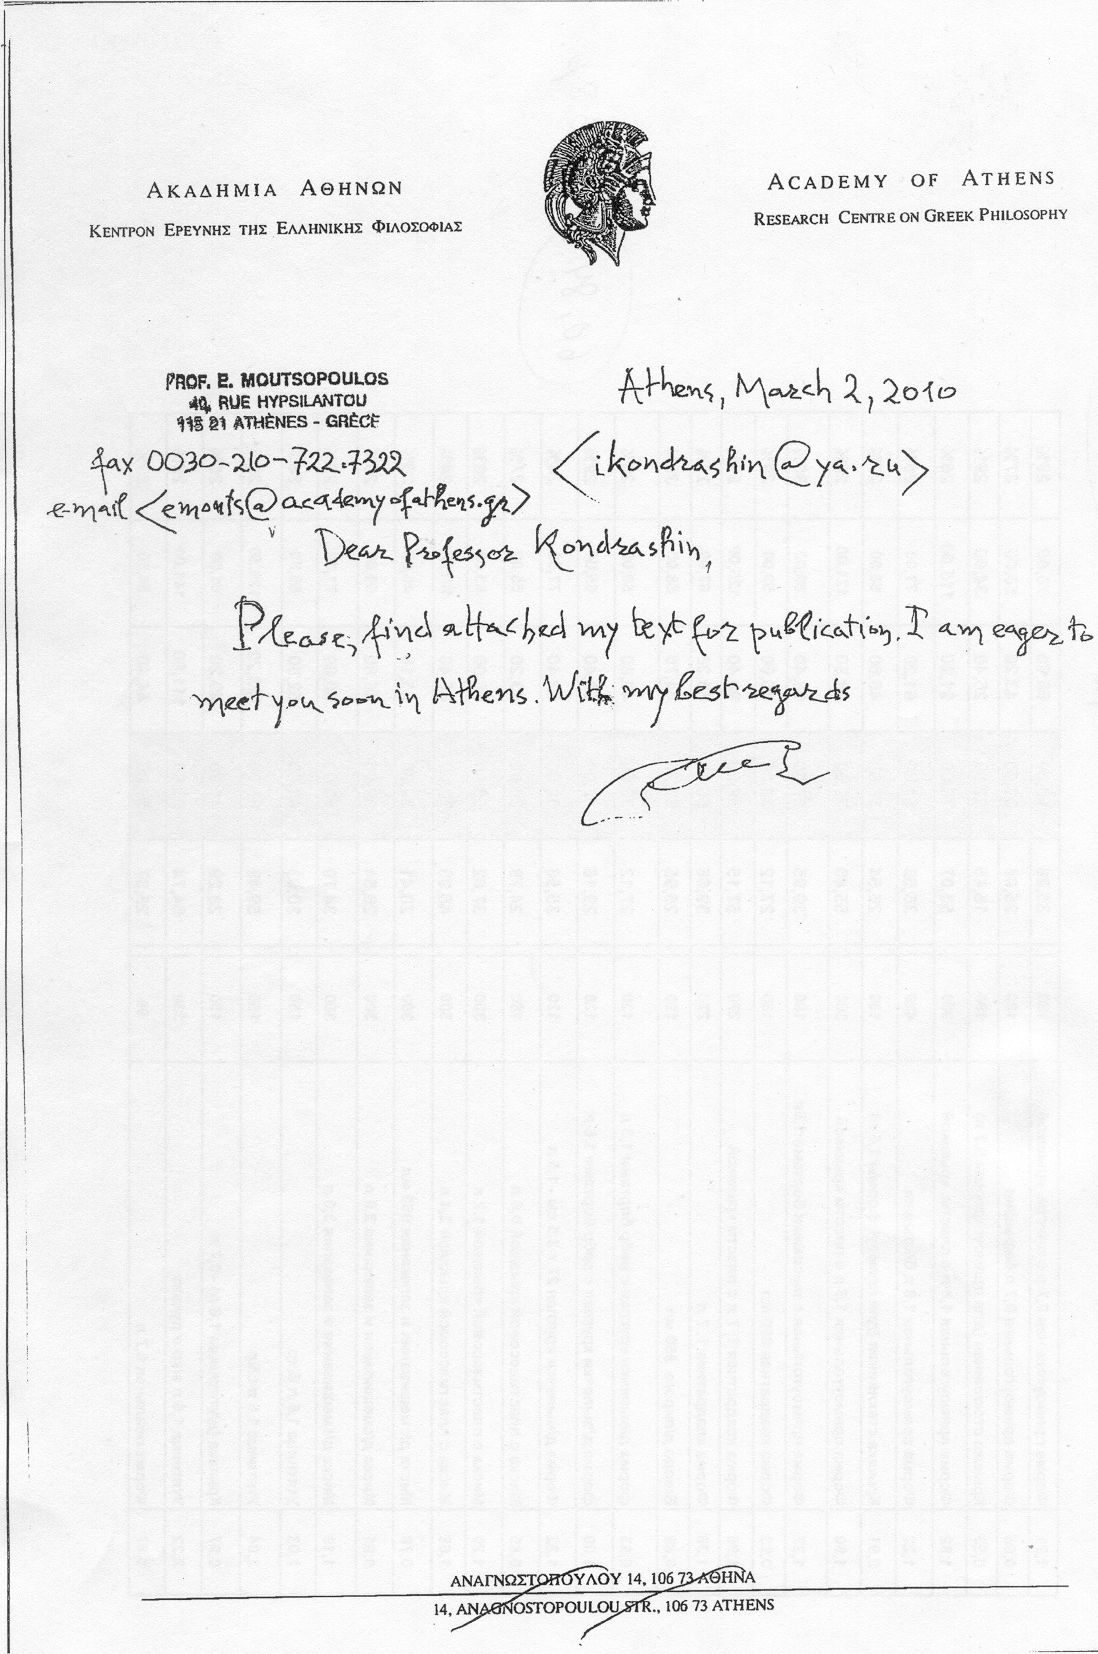 ΑΚΑΔΗΜΙΑ ΑΘΗΝΩΝ
ΚΕΝΤΡΟΝ ΕΡΕΥΝΗΣ ΤΗΣ ΕΛΛΗΝΙΚΗΣ ΦΙΛΟΣΟΦΙΑΣ
ACADEMY OF ATHENS
RESEARCH CENTRE ON GREEK PHILOSOPHY
PROF. E. MOUTSOPOULOS
40, RUE HYPSILANTOU
115 21 ATHÈNES - GRÈCE
fax 0030-210-722.7322
e-mail <emouts@academyofathens.gr>
Athens, March 2, 2010
<ikondrashin@ya.ru>
Dear Professor Kondrashin,
Please, find attached my text for publication. I am eager to
meet you soon in Athens. With my best regards
ΑΝΑΓΝΩΣΤΟΠΟΥΛΟΥ 14, 106 73 ΑΘΗΝΑ
14, ANAGNOSTOPOULOU STR., 106 73 ATHENS